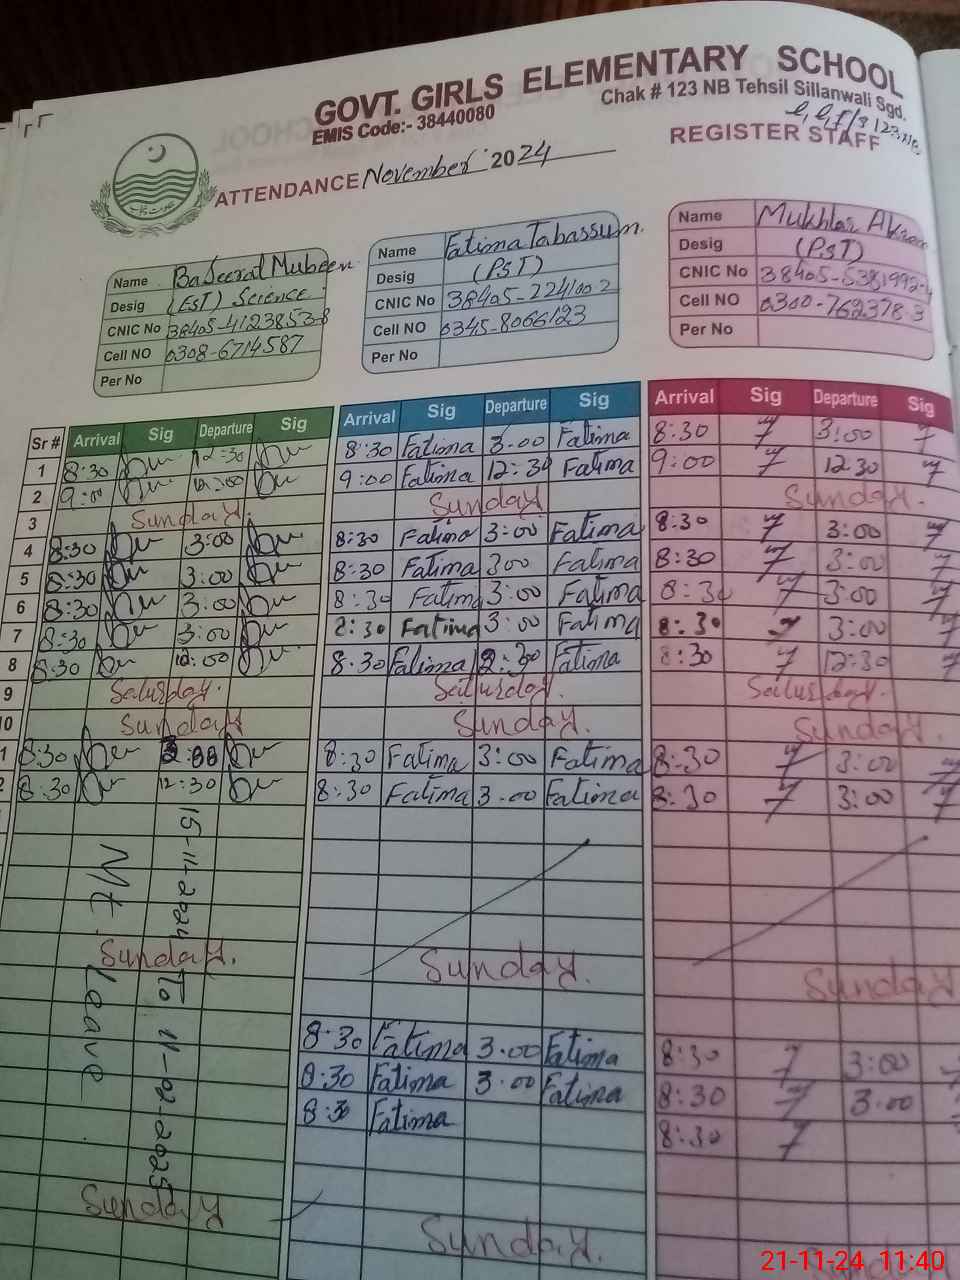 GOVT. GIRLS ELEMENTARY SCHOOL
EMIS Code:- 38440080
Chak # 123 NB Tehsil Sillanwali Sgd.
ATTENDANCE November 2024
REGISTER STAFF
Name Baseerat Mubeen
Desig (EST) Science
CNIC No 38405-4123853-8
Cell NO 0308-6714587
Per No
Name Fatima Tabassum.
Desig (PST)
CNIC No 38405-224100 2
Cell NO 0345-8066123
Per No
Name Mukhtar
Desig (PST)
CNIC No 38405-5381992-4
Cell NO 0300-762378 3
Per No
Sr # Arrival Sig Departure Sig Arrival Sig Departure Sig Arrival Sig Departure Sig
1 8:30 12:30 8:30 Fatima 3.00 Fatima 8:30 3:00
2 9:00 9:00 Fatima 12:30 Fatima 9:00 12.30
3 Sunday. Sunday Sunday.
4 8:30 3:00 8:30 Fatima 3:00 Fatima 8:30 3:00
5 8:30 3:00 8:30 Fatima 300 Fatima 8:30 3:00
6 8:30 3:00 8:30 Fatima 3:00 Fatima 8:30 3:00
7 8:30 3:00 8:30 Fatima 3:00 Fatima 8:30 3:00
8 8:30 12:00 8:30 Fatima 2:30 Fatima 8:30 12:30
9 Saturday. Saturday. Saturday.
10 Sunday Sunday. Sunday.
1 8:30 8:30 Fatima 3:00 Fatima 8:30 3:00
2 8:30 12:30 8:30 Fatima 3.00 Fatima 8:30 3:00
15-11-2024 To 11-02-2025
Mt. Leave
Sunday. Sunday. Sunday
8:30 Fatima 3.00 Fatima 8:30 3:00
8:30 Fatima 3.00 Fatima 8:30 3.00
8:30 Fatima 8:30
Sunday Sunday.
21-11-24 11:40